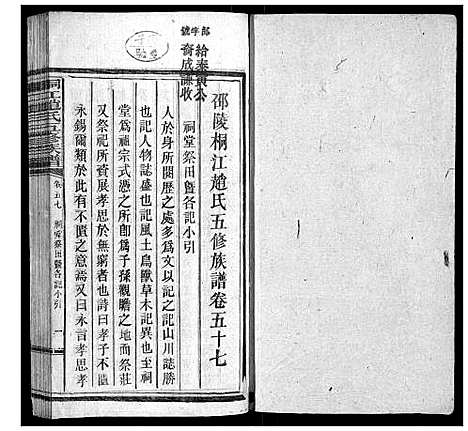 部字號
給泰寅公
裔成謙收
邵陵桐江趙氏五修族譜卷五十七
祠堂祭田暨各記小引
人於身所閱歷之處多為文以記之記山川誌勝
也記人物誌盛也記風土鳥獸草木記異也至祠
堂為福宗式憑之所卽為子孫觀瞻之地而祭莊
又祭祀所資展孝思於無窮者也詩曰孝子不匱
永錫爾類於此有不匱之意焉又曰永言孝思孝
桐江趙氏五修族譜
卷五七
祠堂祭田暨各記小引
一